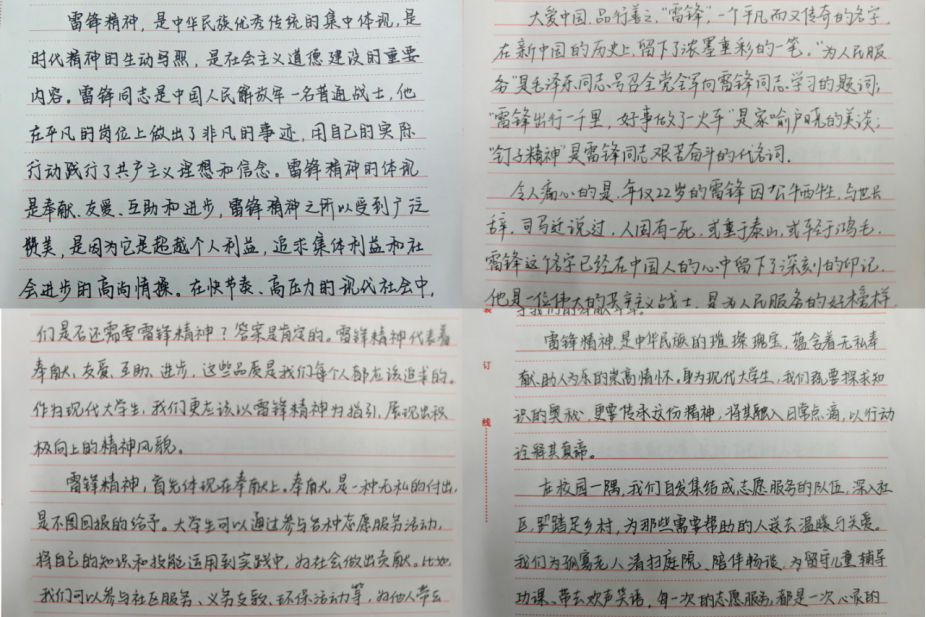 雷锋精神，是中华民族优秀传统的集中体现，是
时代精神的生动写照，是社会主义道德建设的重要
内容。雷锋同志是中国人民解放军一名普通战士，他
在平凡的岗位上做出了非凡的事迹，用自己的实际
行动践行了共产主义理想和信念。雷锋精神的体现
是奉献、友爱、互助和进步，雷锋精神之所以受到广泛
赞美，是因为它是超越个人利益，追求集体利益和社
会进步的高尚情操。在快节奏、高压力的现代社会中，
大爱中国，品行善之，“雷锋”，一个平凡而又传奇的名字，
在新中国的历史上，留下了浓墨重彩的一笔。“为人民服
务”是毛泽东同志号召全党全军向雷锋同志学习的题词；
“雷锋出行一千里，好事做了一火车”是家喻户晓的美谈；
“钉子精神”是雷锋同志艰苦奋斗的代名词．
令人痛心的是，年仅22岁的雷锋因公牺牲，与世长
辞，司马迁说过，人固有一死，或重于泰山，或轻于鸿毛．
雷锋这个名字已经在中国人的心中留下了深刻的印记，
他是一位伟大的共产主义战士，是为人民服务的好榜样
们是否还需要雷锋精神？答案是肯定的。雷锋精神代表着
奉献、友爱、互助、进步，这些品质是我们每个人都应该追求的。
作为现代大学生，我们更应该以雷锋精神为指引，展现出积
极向上的精神风貌。
雷锋精神，首先体现在奉献上。奉献，是一种无私的付出，
是不图回报的给予。大学生可以通过参与各种志愿服务活动，
将自己的知识和技能运用到实践中，为社会做出贡献。比如，
我们可以参与社区服务、义务支教、环保活动等，为他人带去
雷锋精神，是中华民族的璀璨瑰宝，蕴含着无私奉
献、助人为乐的崇高情怀。身为现代大学生，我们既要探求知
识的奥秘，更要传承这份精神，将其融入日常点滴，以行动
诠释其真谛。
在校园一隅，我们自发集结成志愿服务的队伍，深入社
区，踏足乡村，为那些需要帮助的人送去温暖与关爱。
我们为孤寡老人清扫庭院、陪伴畅谈，为留守儿童辅导
功课、带去欢声笑语，每一次的志愿服务，都是一次心灵的
订
线